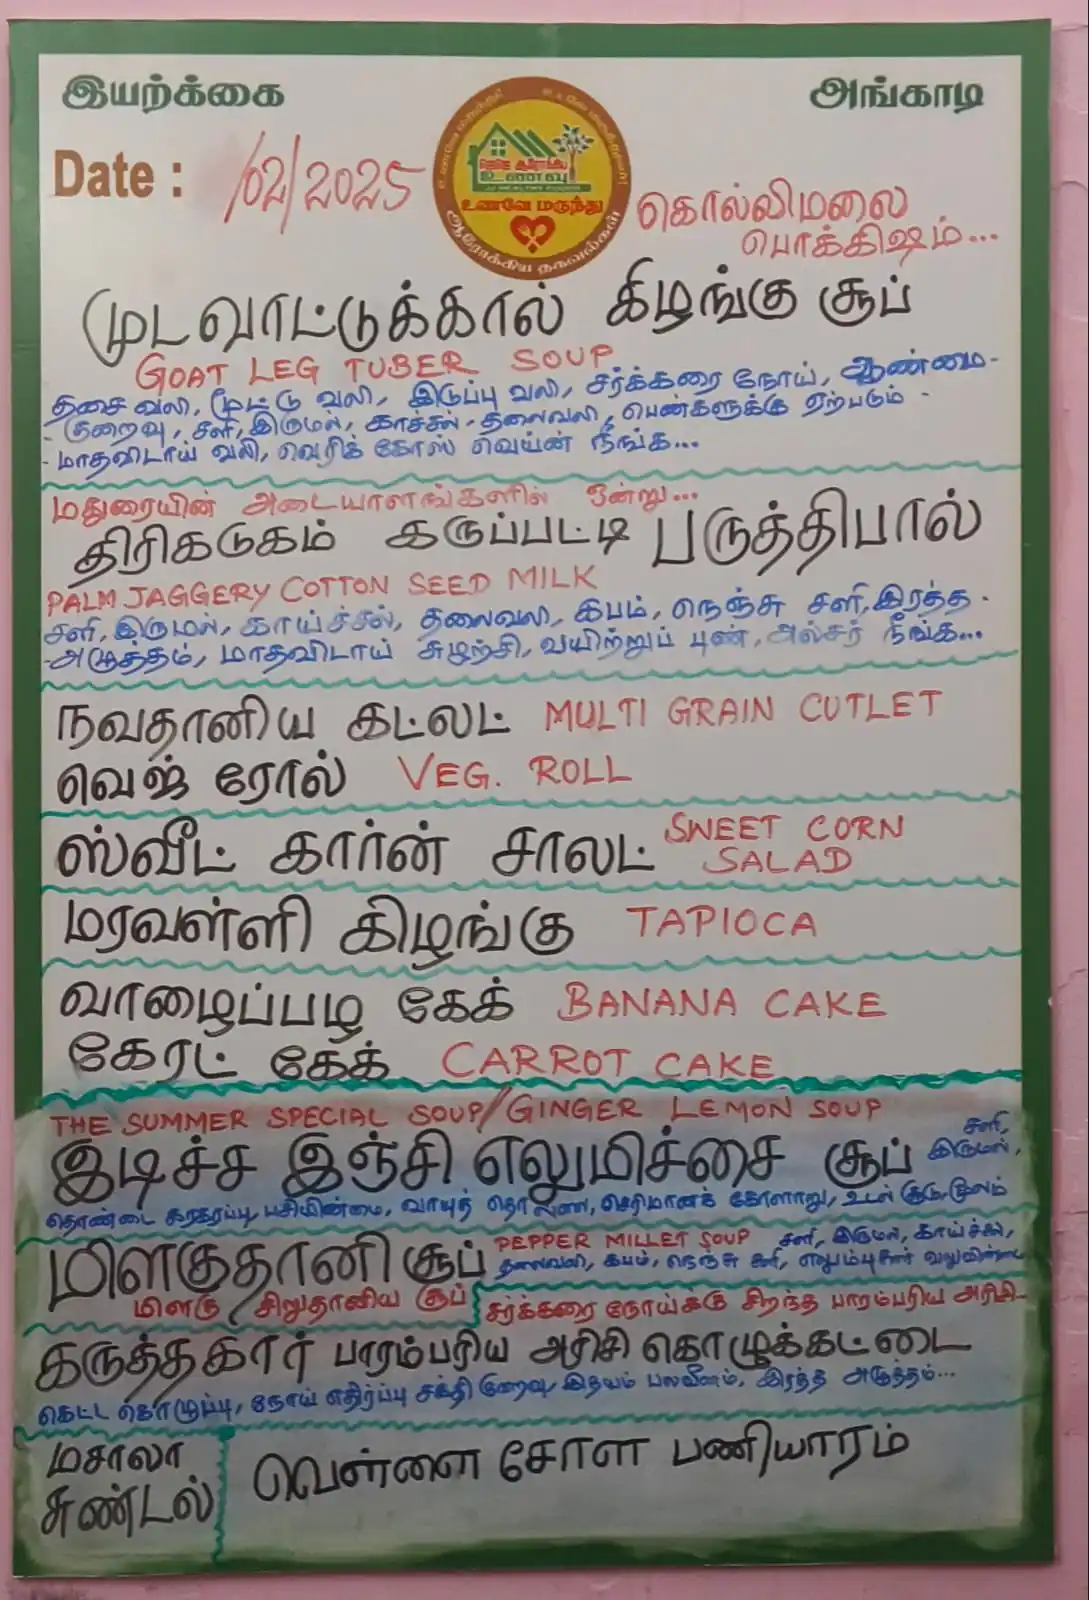 இயற்க்கை அங்காடி
Date : /02/2025
உணவு
உணவே மருந்து
ஆரோக்கிய தகவல்கள்
கொல்லிமலை
பொக்கிஷம்...
முடவாட்டுக்கால் கிழங்கு சூப்
GOAT LEG TUBER SOUP
தசை வலி, மூட்டு வலி, இடுப்பு வலி, சர்க்கரை நோய், ஆண்மை-
- குறைவு, சளி, இருமல், காச்சல், தலைவலி, பெண்களுக்கு ஏற்படும் -
- மாதவிடாய் வலி, வெரிக் கோஸ் வெய்ன் நீங்க...
மதுரையின் அடையாளங்களில் ஒன்று...
திரிகடுகம் கருப்பட்டி பருத்திபால்
PALM JAGGERY COTTON SEED MILK
சளி, இருமல், காய்ச்சல், தலைவலி, கபம், நெஞ்சு சளி, இரத்த -
-அழுத்தம், மாதவிடாய் சுழற்சி, வயிற்றுப் புண், அல்சர் நீங்க...
நவதானிய கட்லட் MULTI GRAIN CUTLET
வெஜ் ரோல் VEG. ROLL
ஸ்வீட் கார்ன் சாலட் SWEET CORN
SALAD
மரவள்ளி கிழங்கு TAPIOCA
வாழைப்பழ கேக் BANANA CAKE
கேரட் கேக் CARROT CAKE
THE SUMMER SPECIAL SOUP/GINGER LEMON SOUP
இடிச்ச இஞ்சி எலுமிச்சை சூப் சளி,
இருமல்,
தொண்டை கரகரப்பு, பசியின்மை, வாயுத் தொல்லை, செரிமானக் கோளாறு, உடல் சூடு, மூலம்
மிளகுதானி சூப் PEPPER MILLET SOUP சளி, இருமல், காய்ச்சல்,
தலைவலி, கபம், நெஞ்சு சளி, எலும்புகள் வலுவின்மை
மிளகு சிறுதானிய சூப் சர்க்கரை நோய்க்கு சிறந்த பாரம்பரிய அரிசி-
கருத்தகார் பாரம்பரிய அரிசி கொழுக்கட்டை
கெட்ட கொழுப்பு, நோய் எதிர்ப்பு சக்தி குறைவு, இதயம் பலவீனம், இரத்த அழுத்தம்...
மசாலா
சுண்டல்
வெள்ளை சோள பணியாரம்